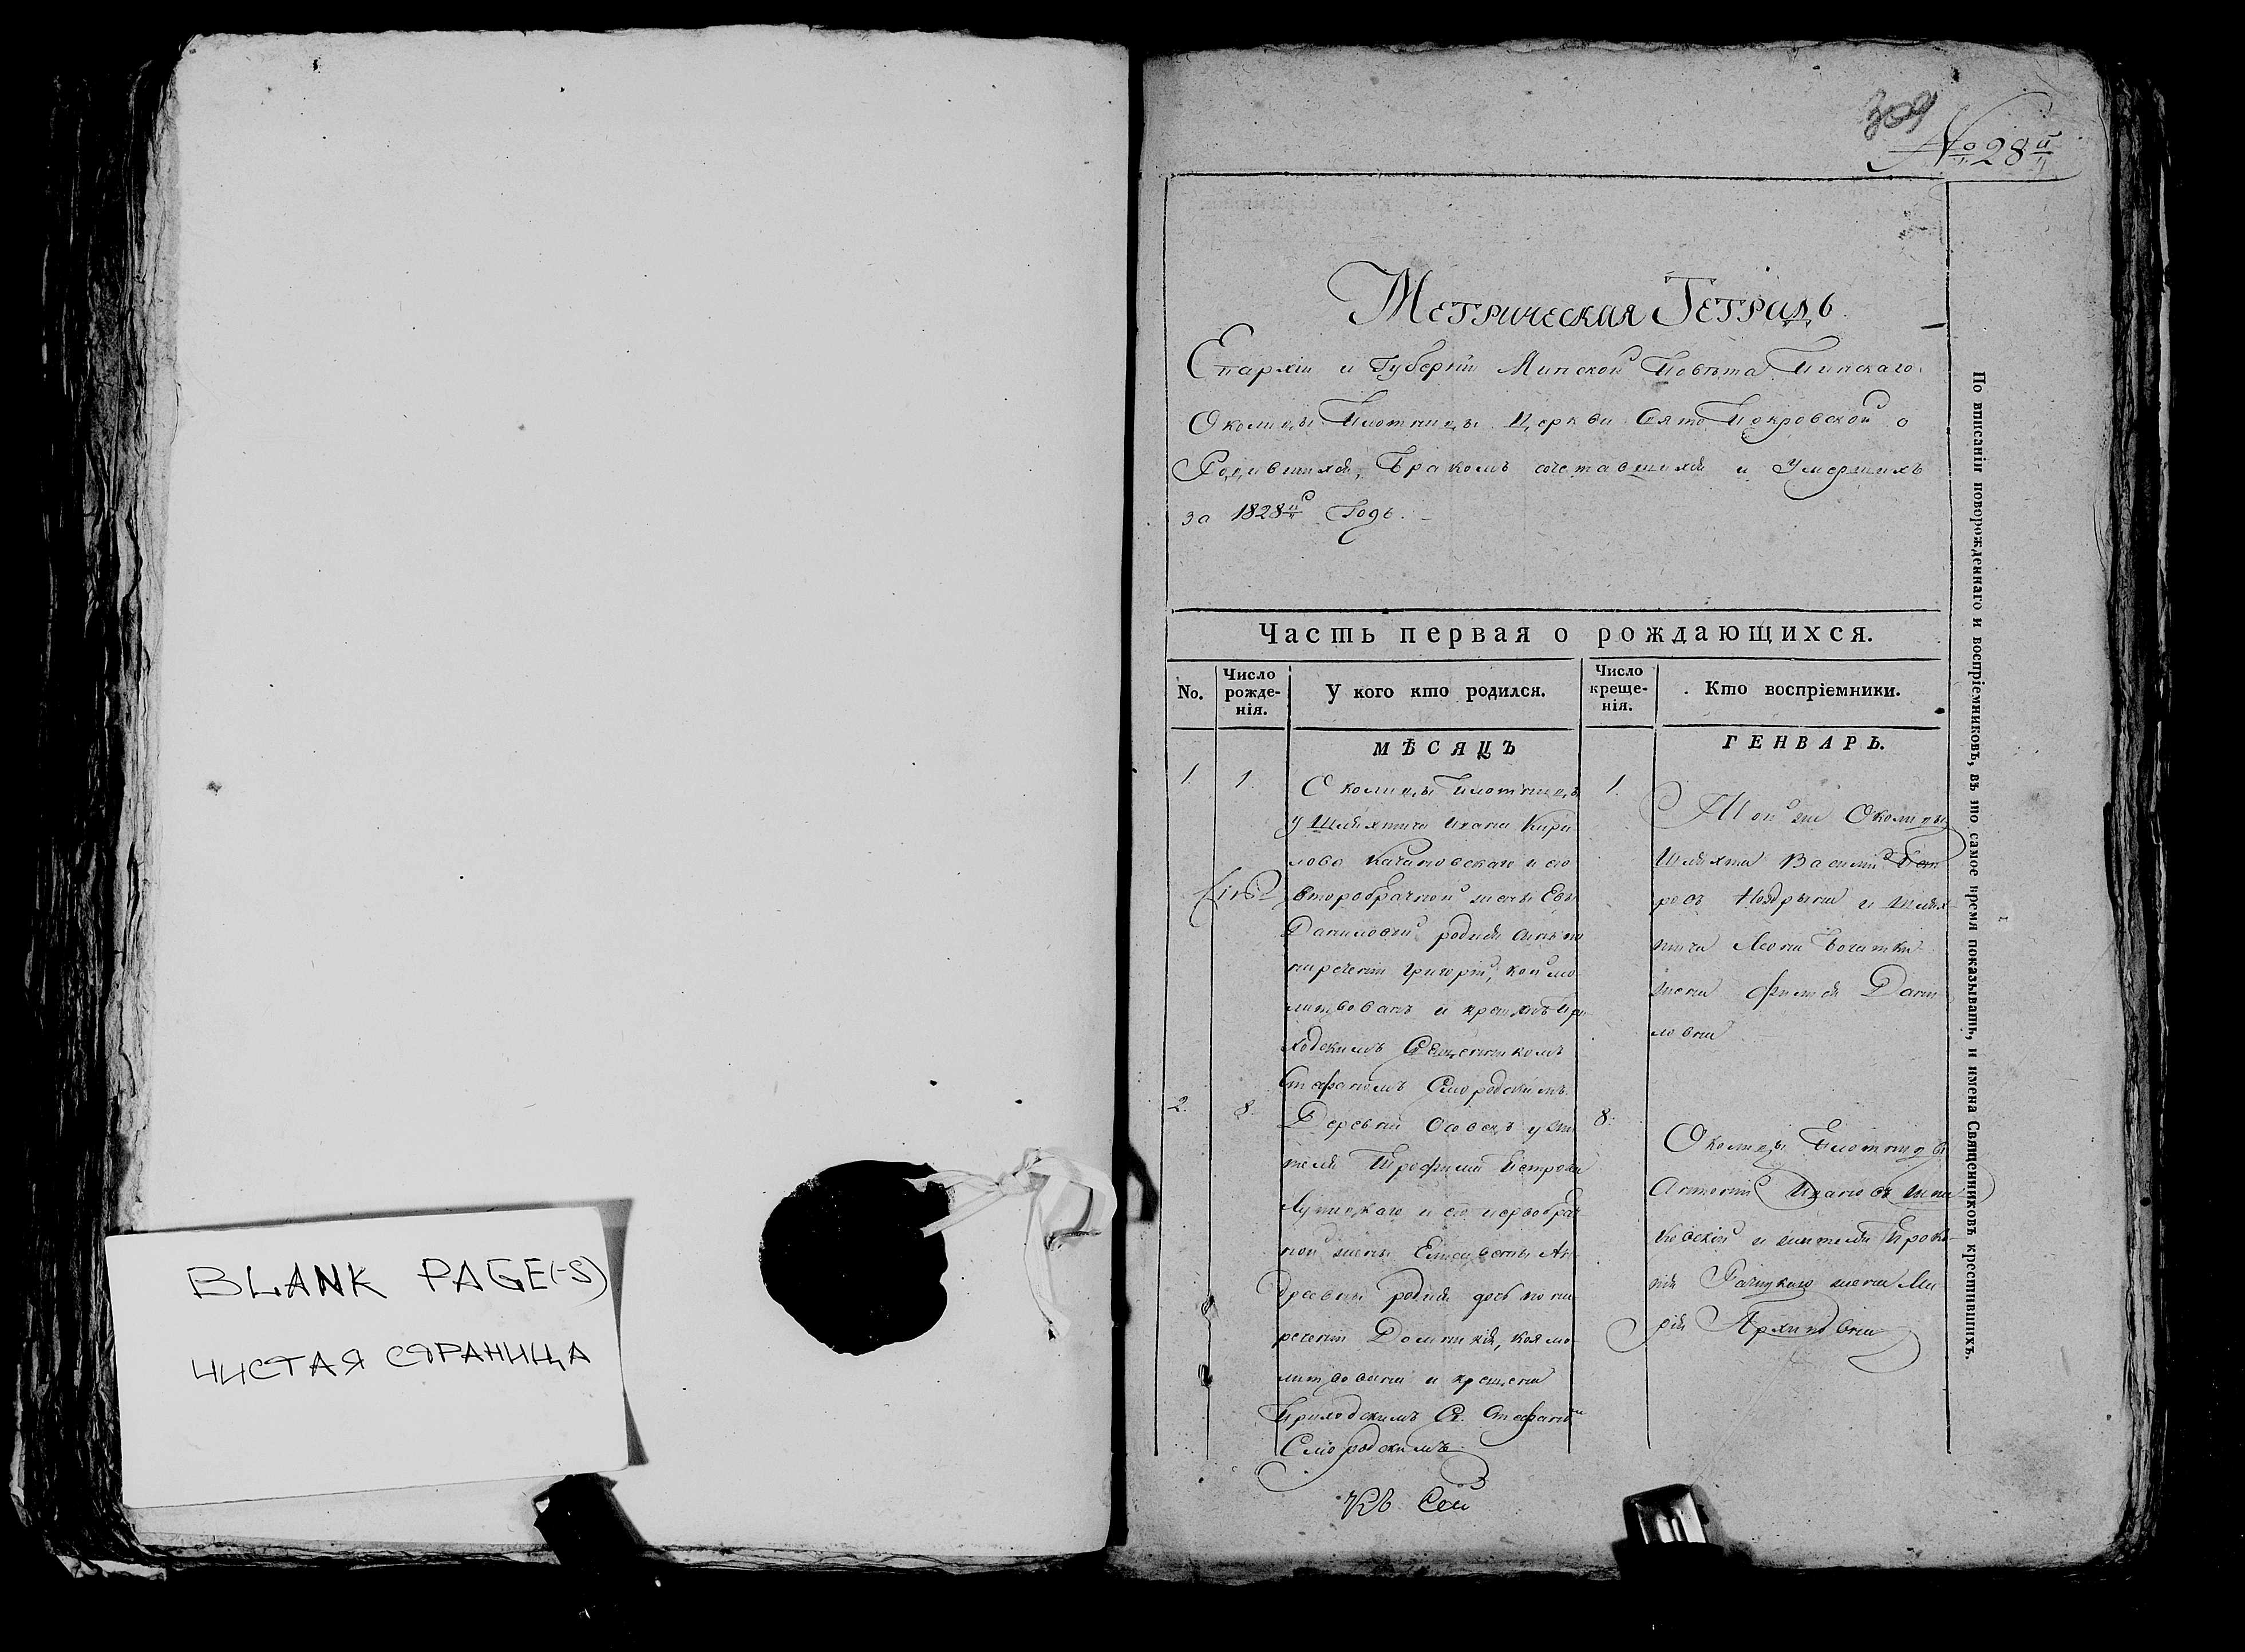 BLANK PAGE(-S)
ЧИСТАЯ СТРАНИЦА
309
№ 28й
Метрическая Тетрадь
Епархіи и Губерніи Минской Повѣта Пинскаго
Околицы Плотницы Церкви Свято Покровской о
Родившихся, Бракомъ сочетавшихся и Умершихъ
за 1828й Годъ.
Часть первая о рождающихся.
No.
Число рожденія.
У кого кто родился.
Число крещенія.
Кто воспріемники.
МѢСЯЦЪ
ГЕНВАРЬ.
1. 1.
Околицы Плотницы
у Шляхтича Ивана Кири
лова Качановскаго и его
второбрачной жены Евы
Даниловой родился сынъ по
нареченіи Григорій, кой мо
литвованъ и крещенъ При
ходскимъ Священникомъ
Стефаномъ Смородскимъ
1.
Той же Околицы
Шляхта Василій Пет
ровъ и Шлях
тича
жена Данн
ловна
2. 8.
Деревни Осовецъ у жи
теля Трофима Петрова
и его первобрач
ной жены Елисаветы Ан
дреевны родилась дочь по на
реченіи Домникія, коя мо
литвована и крещена
Приходскимъ С. Стефаномъ
Смородскимъ.
8.
Околицы Плотницы
Антоній Ивановъ
и жителя Проко
пія жена Ма
рія Архиповна
По вписаніи новорожденнаго и воспріемниковъ, въ то самое время показывать, и имена Священниковъ крестившихъ.